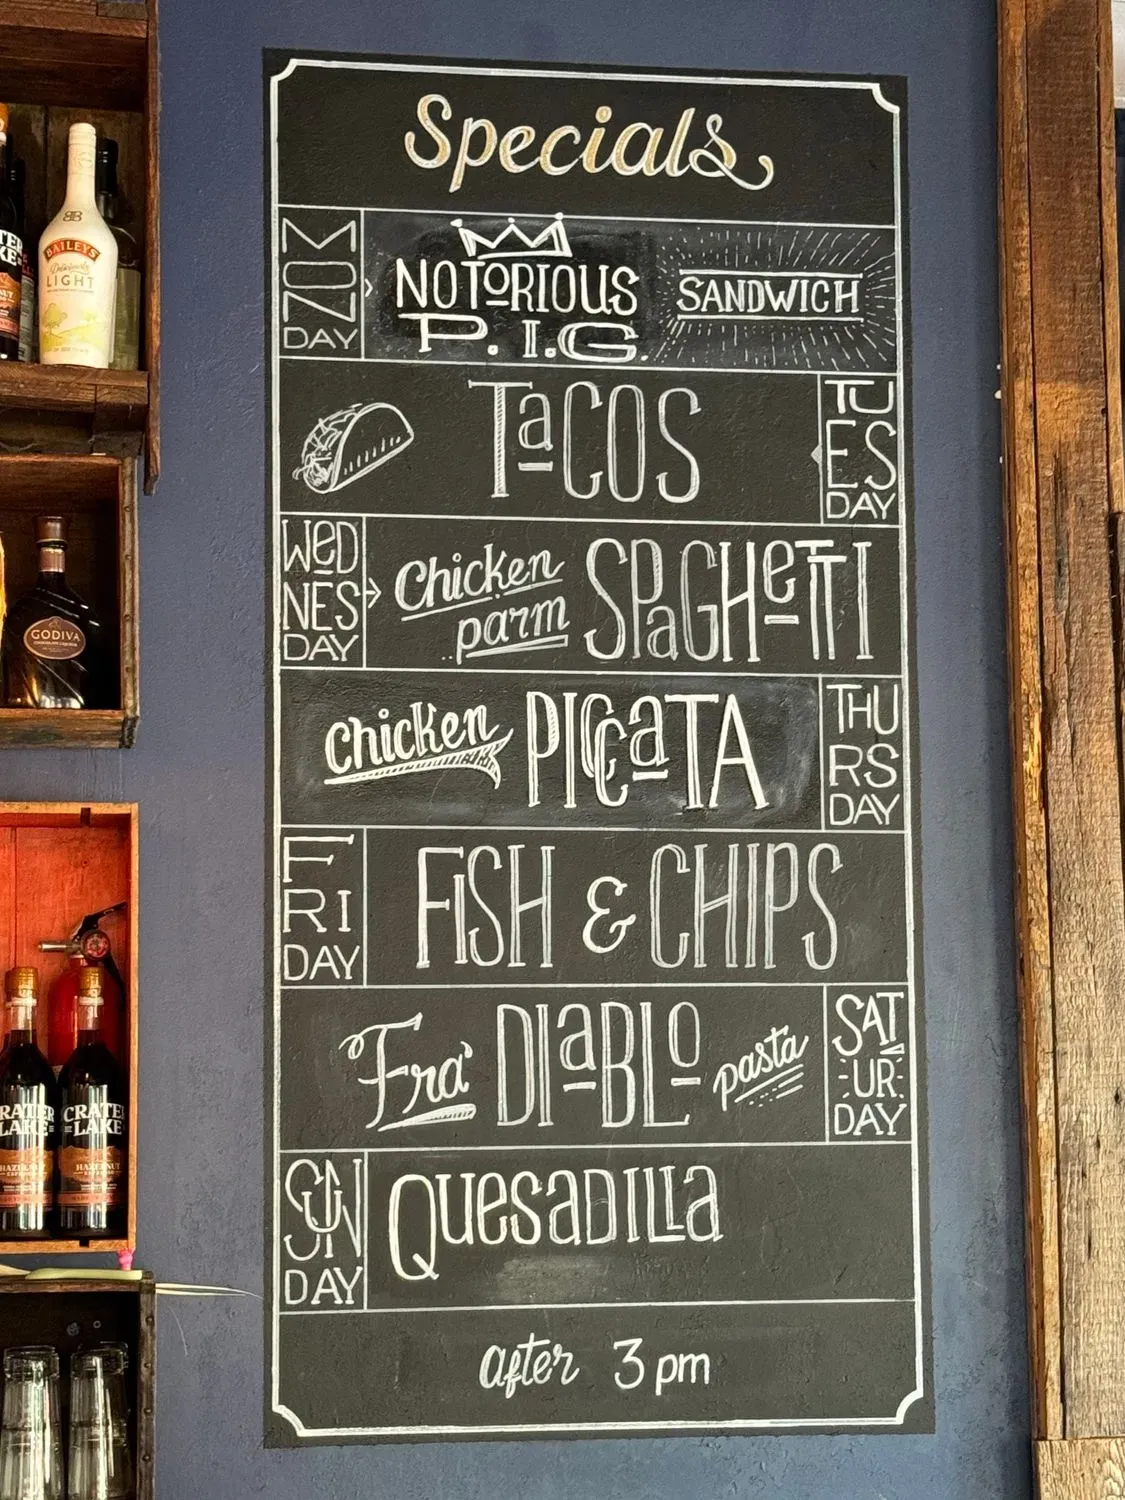 Specials
MON
DAY
NOTORIOUS
P.I.G.
SANDWICH
TACOS
TU
ES
DAY
WED
NES
DAY
Chicken
parm
SPAGHETTI
chicken
PICCATA
THU
RS
DAY
F
RI
DAY
FISH & CHIPS
Fra DIABLO pasta
SAT
UR
DAY
SUN
DAY
QUESADILLA
after 3 pm
BAILEYS
Deliciously
LIGHT
GODIVA
CRATER
LAKE
HAZELNUT
ESPRESSO
RATER
LAKE
HAZELNUT